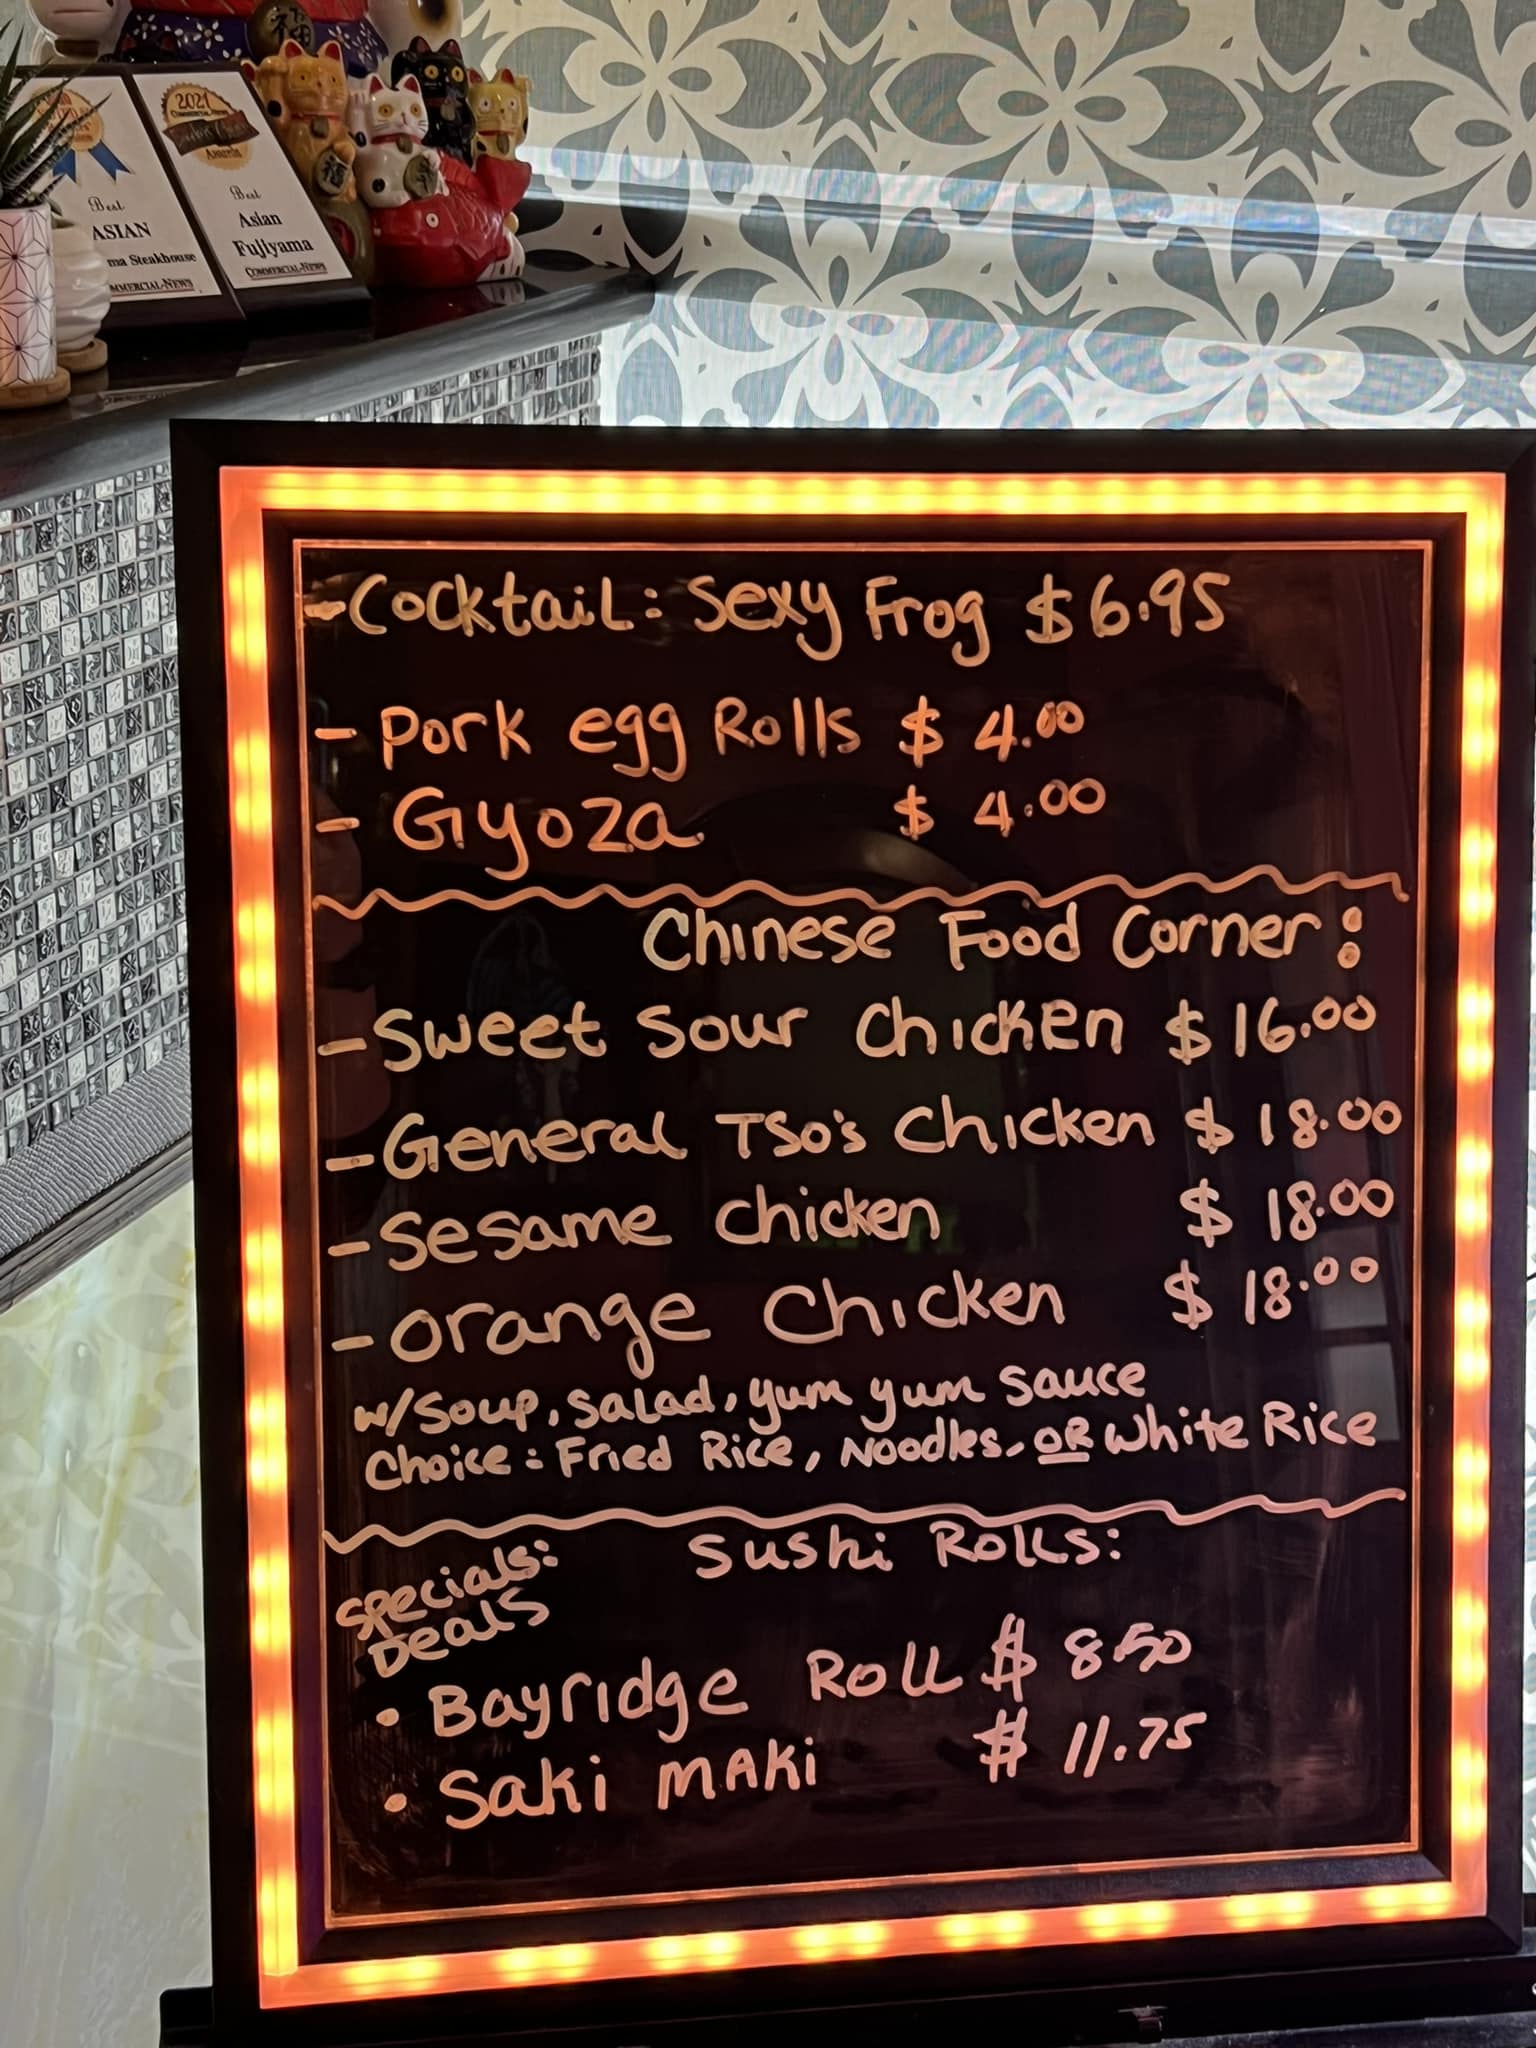 福
2021
COMMERCIAL-NEWS
AWARDS
Best
ASIAN
ma Steakhouse
MMERCIAL-NEWS
Best
Asian
Fujiyama
COMMERCIAL-NEWS
-Cocktail: Sexy Frog $6.95
- Pork egg Rolls $ 4.00
- Gyoza $ 4.00
Chinese Food Corner:
- Sweet Sour Chicken $16.00
- General TSO's Chicken $ 18.00
- Sesame Chicken $ 18.00
- Orange Chicken $ 18.00
w/Soup, Salad, yum yum Sauce
Choice: Fried Rice, Noodles, OR White Rice
Specials: Sushi Rolls:
Deals
• Bayridge Roll $ 8.50
• Saki MAKi $ 11.75